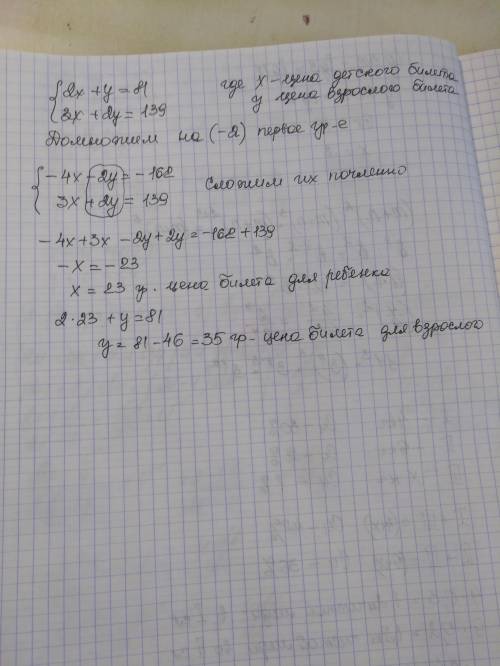 {2x + y = 81 где x - цена детского билета
{3x + 2y = 139 y цена взрослого билета
Домножием на (-2) первое ур-е
{-4x - 2y = -162
{3x + 2y = 139 сложим их почленно
-4x + 3x - 2y + 2y = -162 + 139
-x = -23
x = 23 гр. цена билета для ребенка
2·23 + y = 81
y = 81 - 46 = 35 гр - цена билета для взрослого